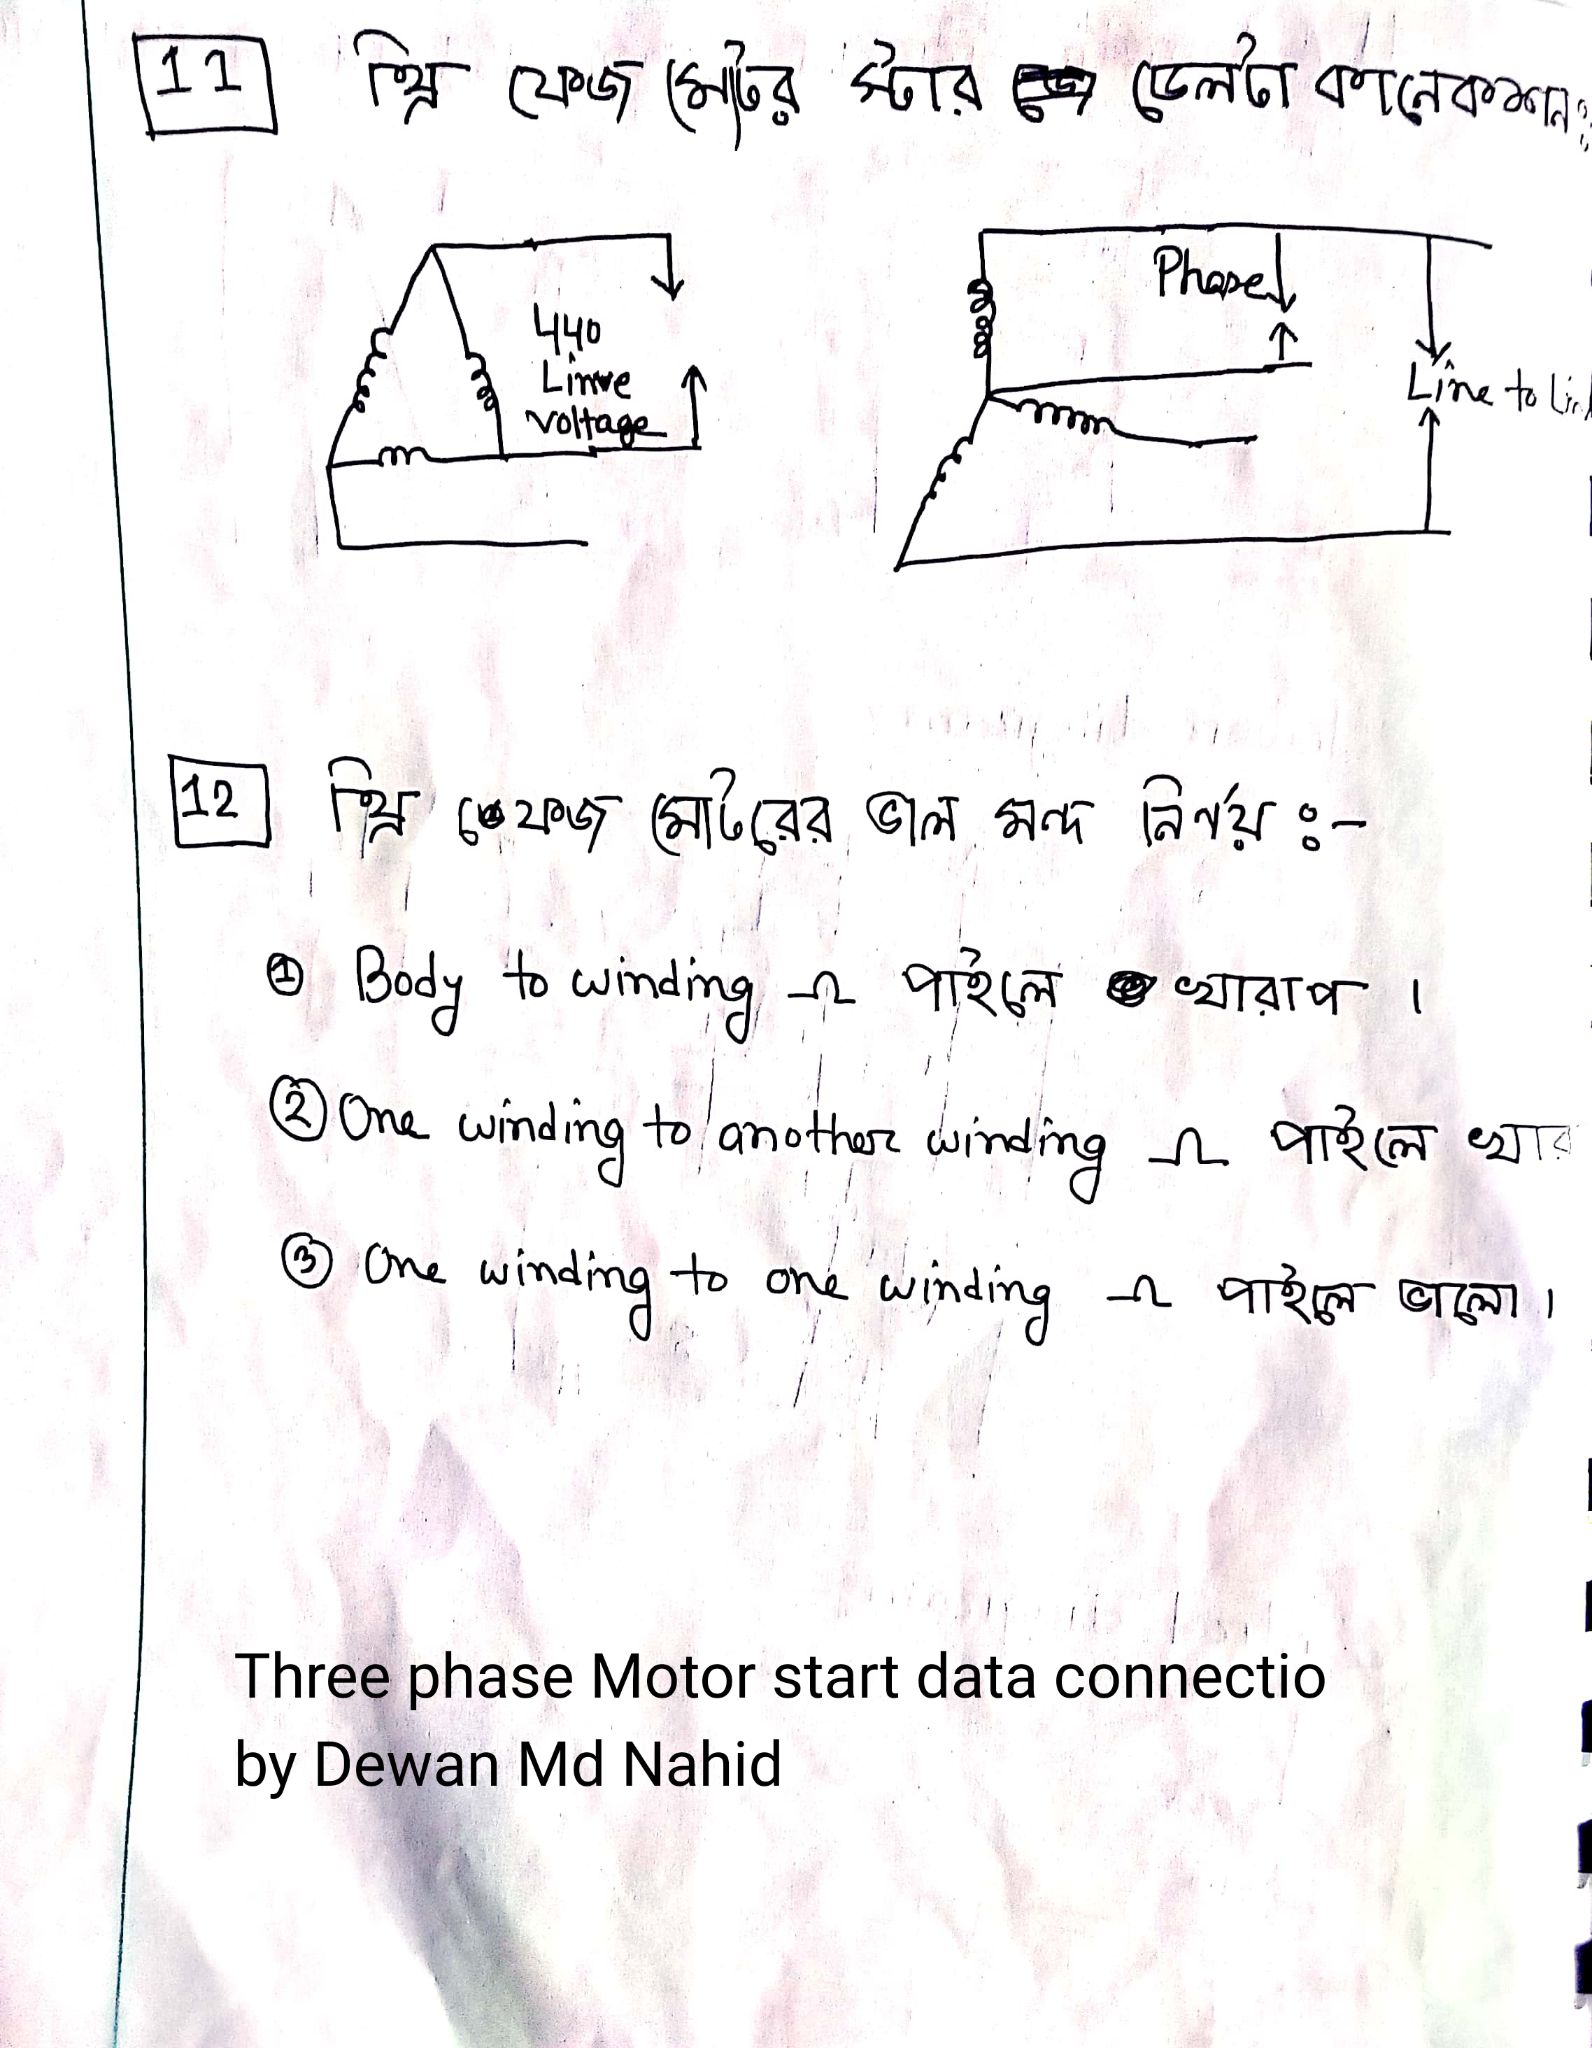 11 থ্রি ফেজ মোটর স্টার ডেলটা কানেকশন :
440
Linve
voltage
Phase
Line to
12 থ্রি ফেজ মোটরের ভাল মন্দ নির্ণয় :-
① Body to winding Ω পাইলে খারাপ ।
② One winding to another winding Ω পাইলে খার
③ One winding to one winding Ω পাইলে ভালো ।
Three phase Motor start data connectio
by Dewan Md Nahid